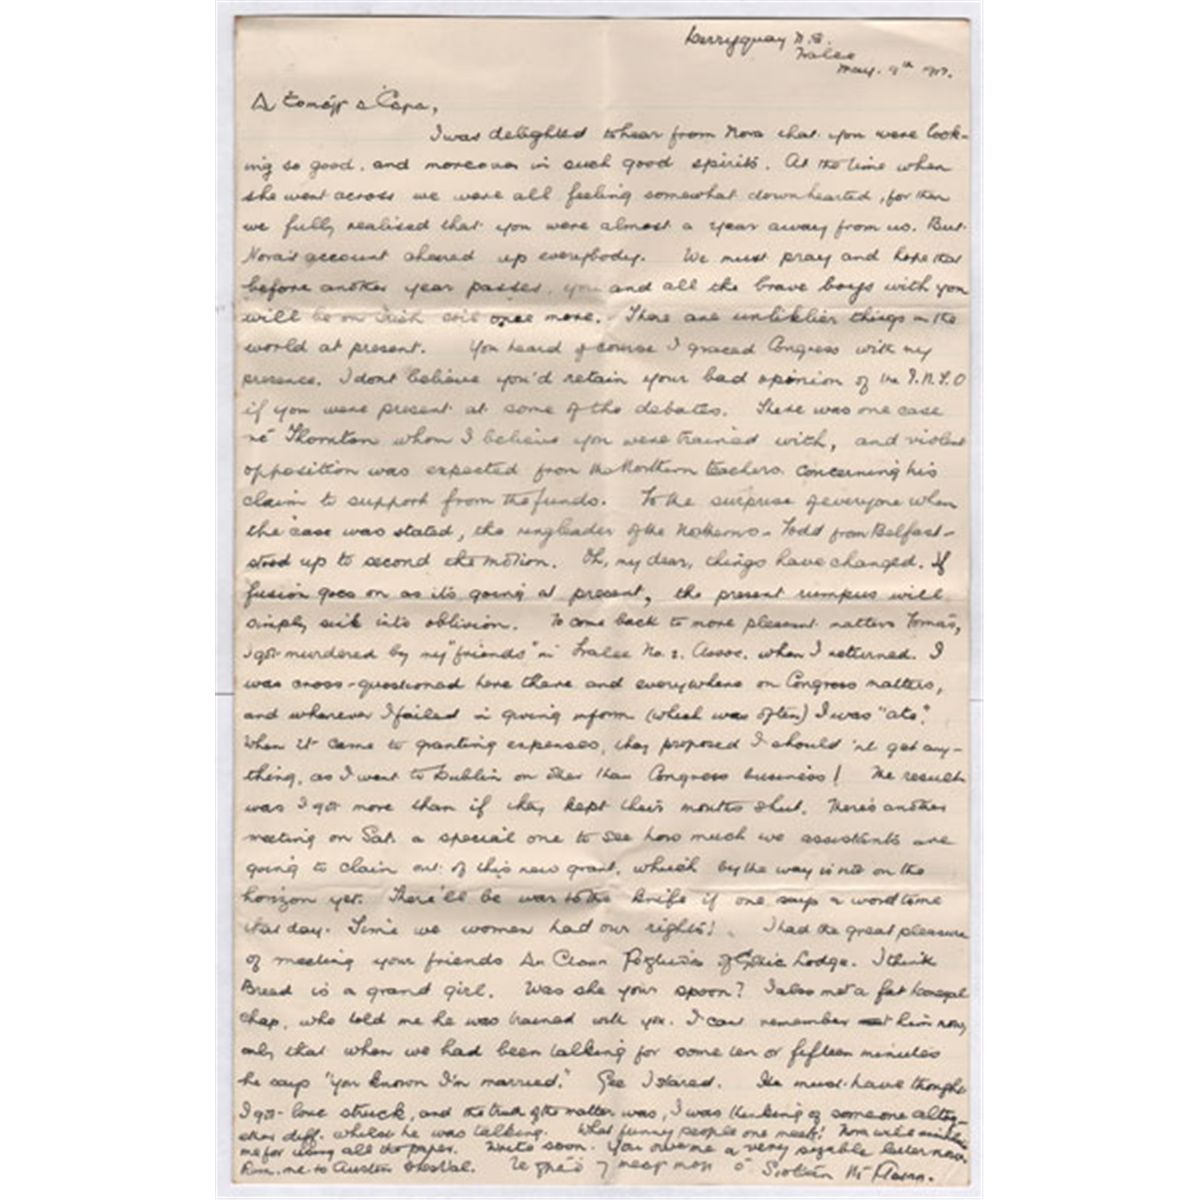 Derryquay N.S.
Tralee
May. 9th '17.
A Tomáis a Chara,
I was delighted to hear from Nora that you were look-
ing so good, and moreover in such good spirits. At the time when
she went across we were all feeling somewhat downhearted, for then
we fully realised that you were almost a year away from us. But
Nora's account cheered up everybody. We must pray and hope that
before another year passes, you and all the brave boys with you
will be on Irish soil once more. There are unliklier things in the
world at present. You heard of course I graced Congress with my
presence. I dont believe you'd retain your bad opinion of the I.N.T.O
if you were present at some of the debates. There was one case
re Thornton whom I believe you were trained with, and violent
opposition was expected from the Northern teachers concerning his
claim to support from the funds. To the surprise of everyone when
the case was stated, the ringleader of the Northerns - Todd from Belfast -
stood up to second the motion. Oh, my dear, things have changed. If
fusion goes on as its going at present, the present rumpus will
simply sink into oblivion. To come back to more pleasent matters Tomás,
I got murdered by my "friends" in Tralee No. 2. Assoc. when I returned. I
was cross-questioned here there and everywhere on Congress matters,
and wherever I failed in giving inform (which was often) I was "ate".
When it came to granting expenses, they proposed I should 'nt get any-
thing, as I went to Dublin on other than Congress business! The result
was I got more than if they kept their mouths shut. There's another
meeting on Sat. a special one to see how much we assistants are
going to claim out of this new grant, which by the way is not on the
horizon yet. There'll be war to the knife if one says a word to me
that day. Time we women had our rights! I had the great pleasure
of meeting your friends An Cloan of Gaelic Lodge. I think
Bread is a grand girl. Was she your spoon? I also met a fat Donegal
chap, who told me he was trained with you. I cant remember him now,
only that when we had been talking for some ten or fifteen minutes
he says "you known I'm married." Gee I stared. He must have thought
I got love struck, and the truth of the matter was, I was thinking of someone altog-
ether diff. whilst he was talking. What funny people one meets! Nora will
me for using all the paper. Write soon. You owe me a very sizable letter now.
me to Austin Stack. Le grádh 7 meas mór ó Siobhán